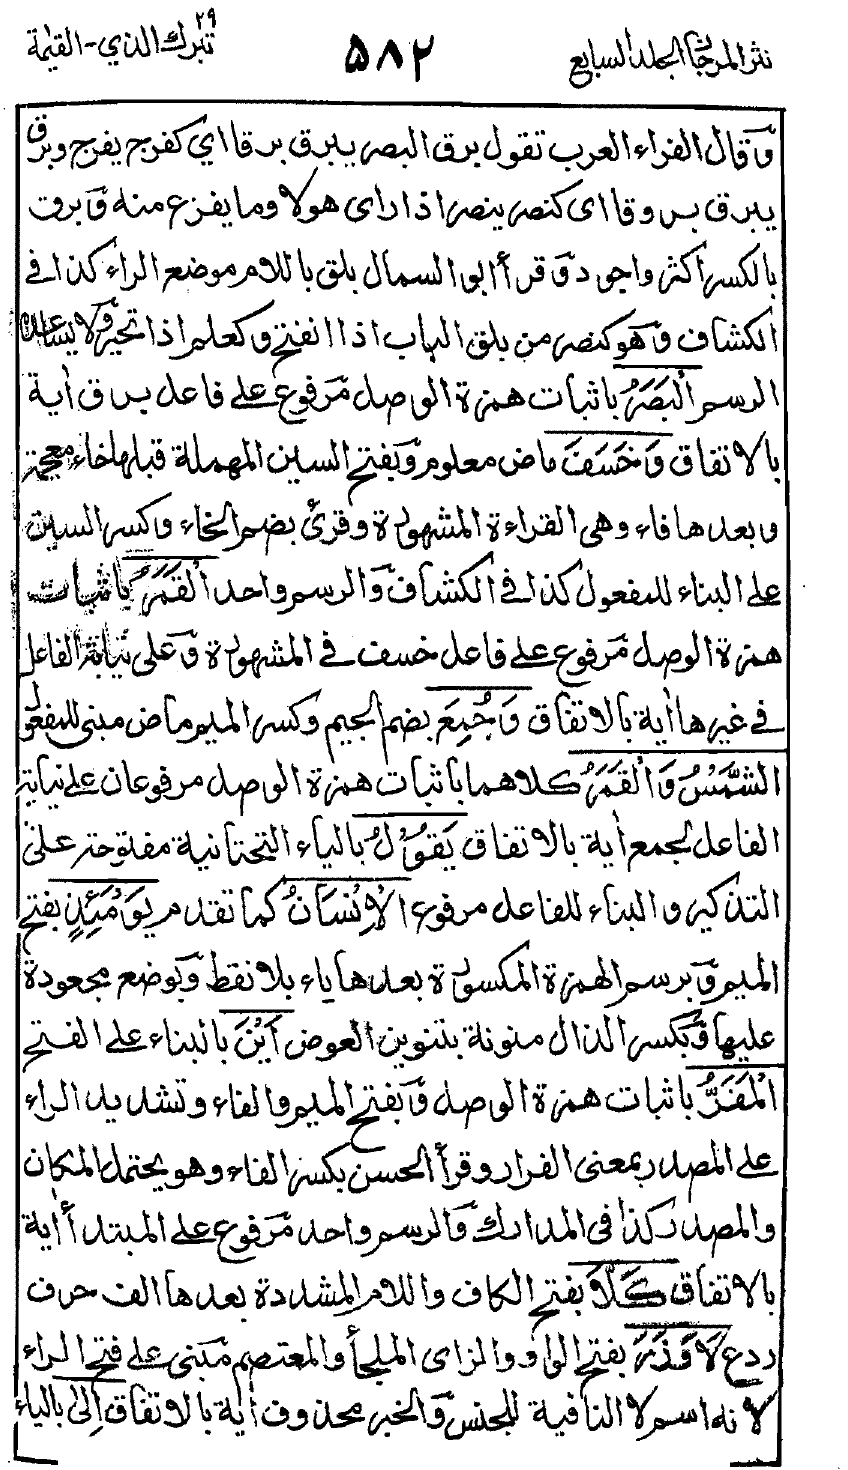 نثر المرجان الجلد السابع
٥٨٢
تبرك الذي ٢٩ - القيمة
وقال الفراء العرب تقول برق البصر يبرق برقا اي كفرح يفرح وبرق
يبرق بروقا اى كنصر ينصر اذا راى هولا وما يفزع منه وبرق
بالكسر اكثر واجود وقرأ ابو السمال بلق باللام موضع الراء كذا في
الكشاف وهو كنصر من بلق الباب اذا انفتح وكعلم اذا تحير ولا يساعده
الرسم الْبَصَرُ باثبات همزة الوصل مرفوع على فاعل برق أية
بالاتفاق وَخَسَفَ ماض معلوم وبفتح السين المهملة قبلها خاء معجمة
وبعدها فاء وهى القراءة المشهورة وقرئ بضم الخاء وكسر السين
على البناء للمفعول كذا في الكشاف والرسم واحد الْقَمَرُ باثبات
همزة الوصل مرفوع على فاعل خسف في المشهورة وعلى نيابة الفاعل
في غيرها أية بالاتفاق وَجُمِعَ بضم الجيم وكسر الميم ماض مبنى للمفعول
الشَّمْسُ وَالْقَمَرُ كلاهما باثبات همزة الوصل مرفوعان على نيابة
الفاعل لجمع أية بالاتفاق يَقُوْلُ بالياء التحتانية مفتوحة على
التذكير والبناء للفاعل مرفوع الْإِنْسَانُ كما تقدم يَوْمَئِذٍ بفتح
الميم وبرسم الهمزة المكسورة بعدها ياء بلا نقط وبوضع مجعودة
عليها وبكسر الذال منونة بتنوين العوض أَيْنَ بالبناء على الفتح
الْمَفَرُّ باثبات همزة الوصل وبفتح الميم والفاء وتشديد الراء
على المصدر بمعنى الفرار وقرأ الحسن بكسر الفاء وهو يحتمل المكان
والمصدر كذا في المدارك والرسم واحد مرفوع على المبتدأ أية
بالاتفاق كَلَّا بفتح الكاف واللام المشددة بعدها الف حرف
ردع لَا وَزَرَ بفتح الواو والزاى الملجأ والمعتصم مبنى على فتح الراء
لانه اسم لا النافية للجنس والخبر محذوف أية بالاتفاق إِلٰى بالياء